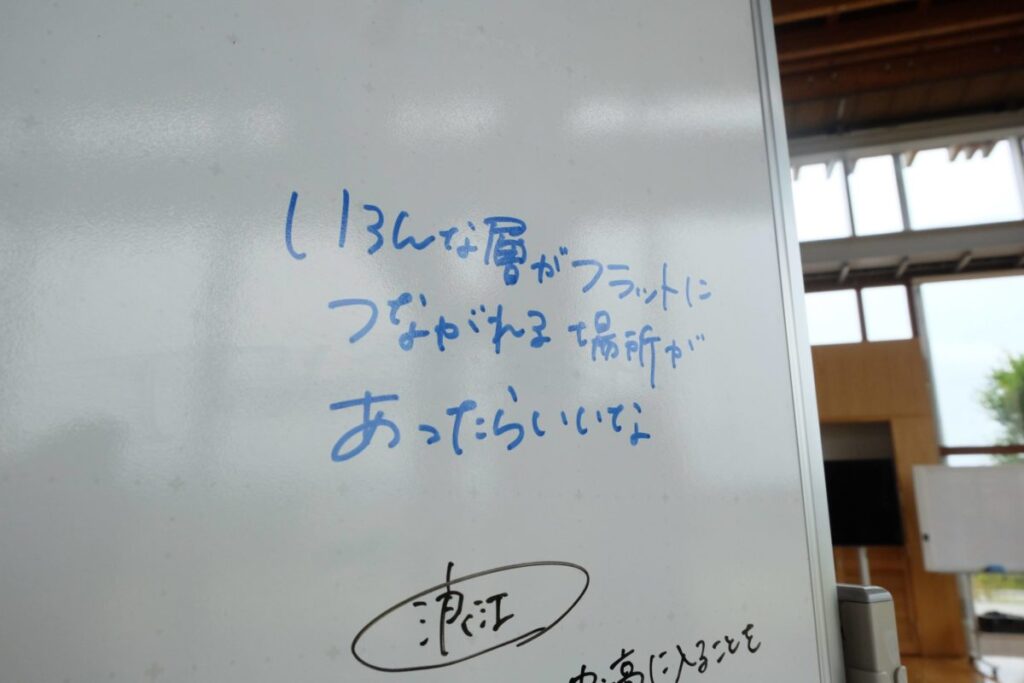 いろんな層がフラットに
つながれる場所が
あったらいいな
浪江
中・高に入ることを